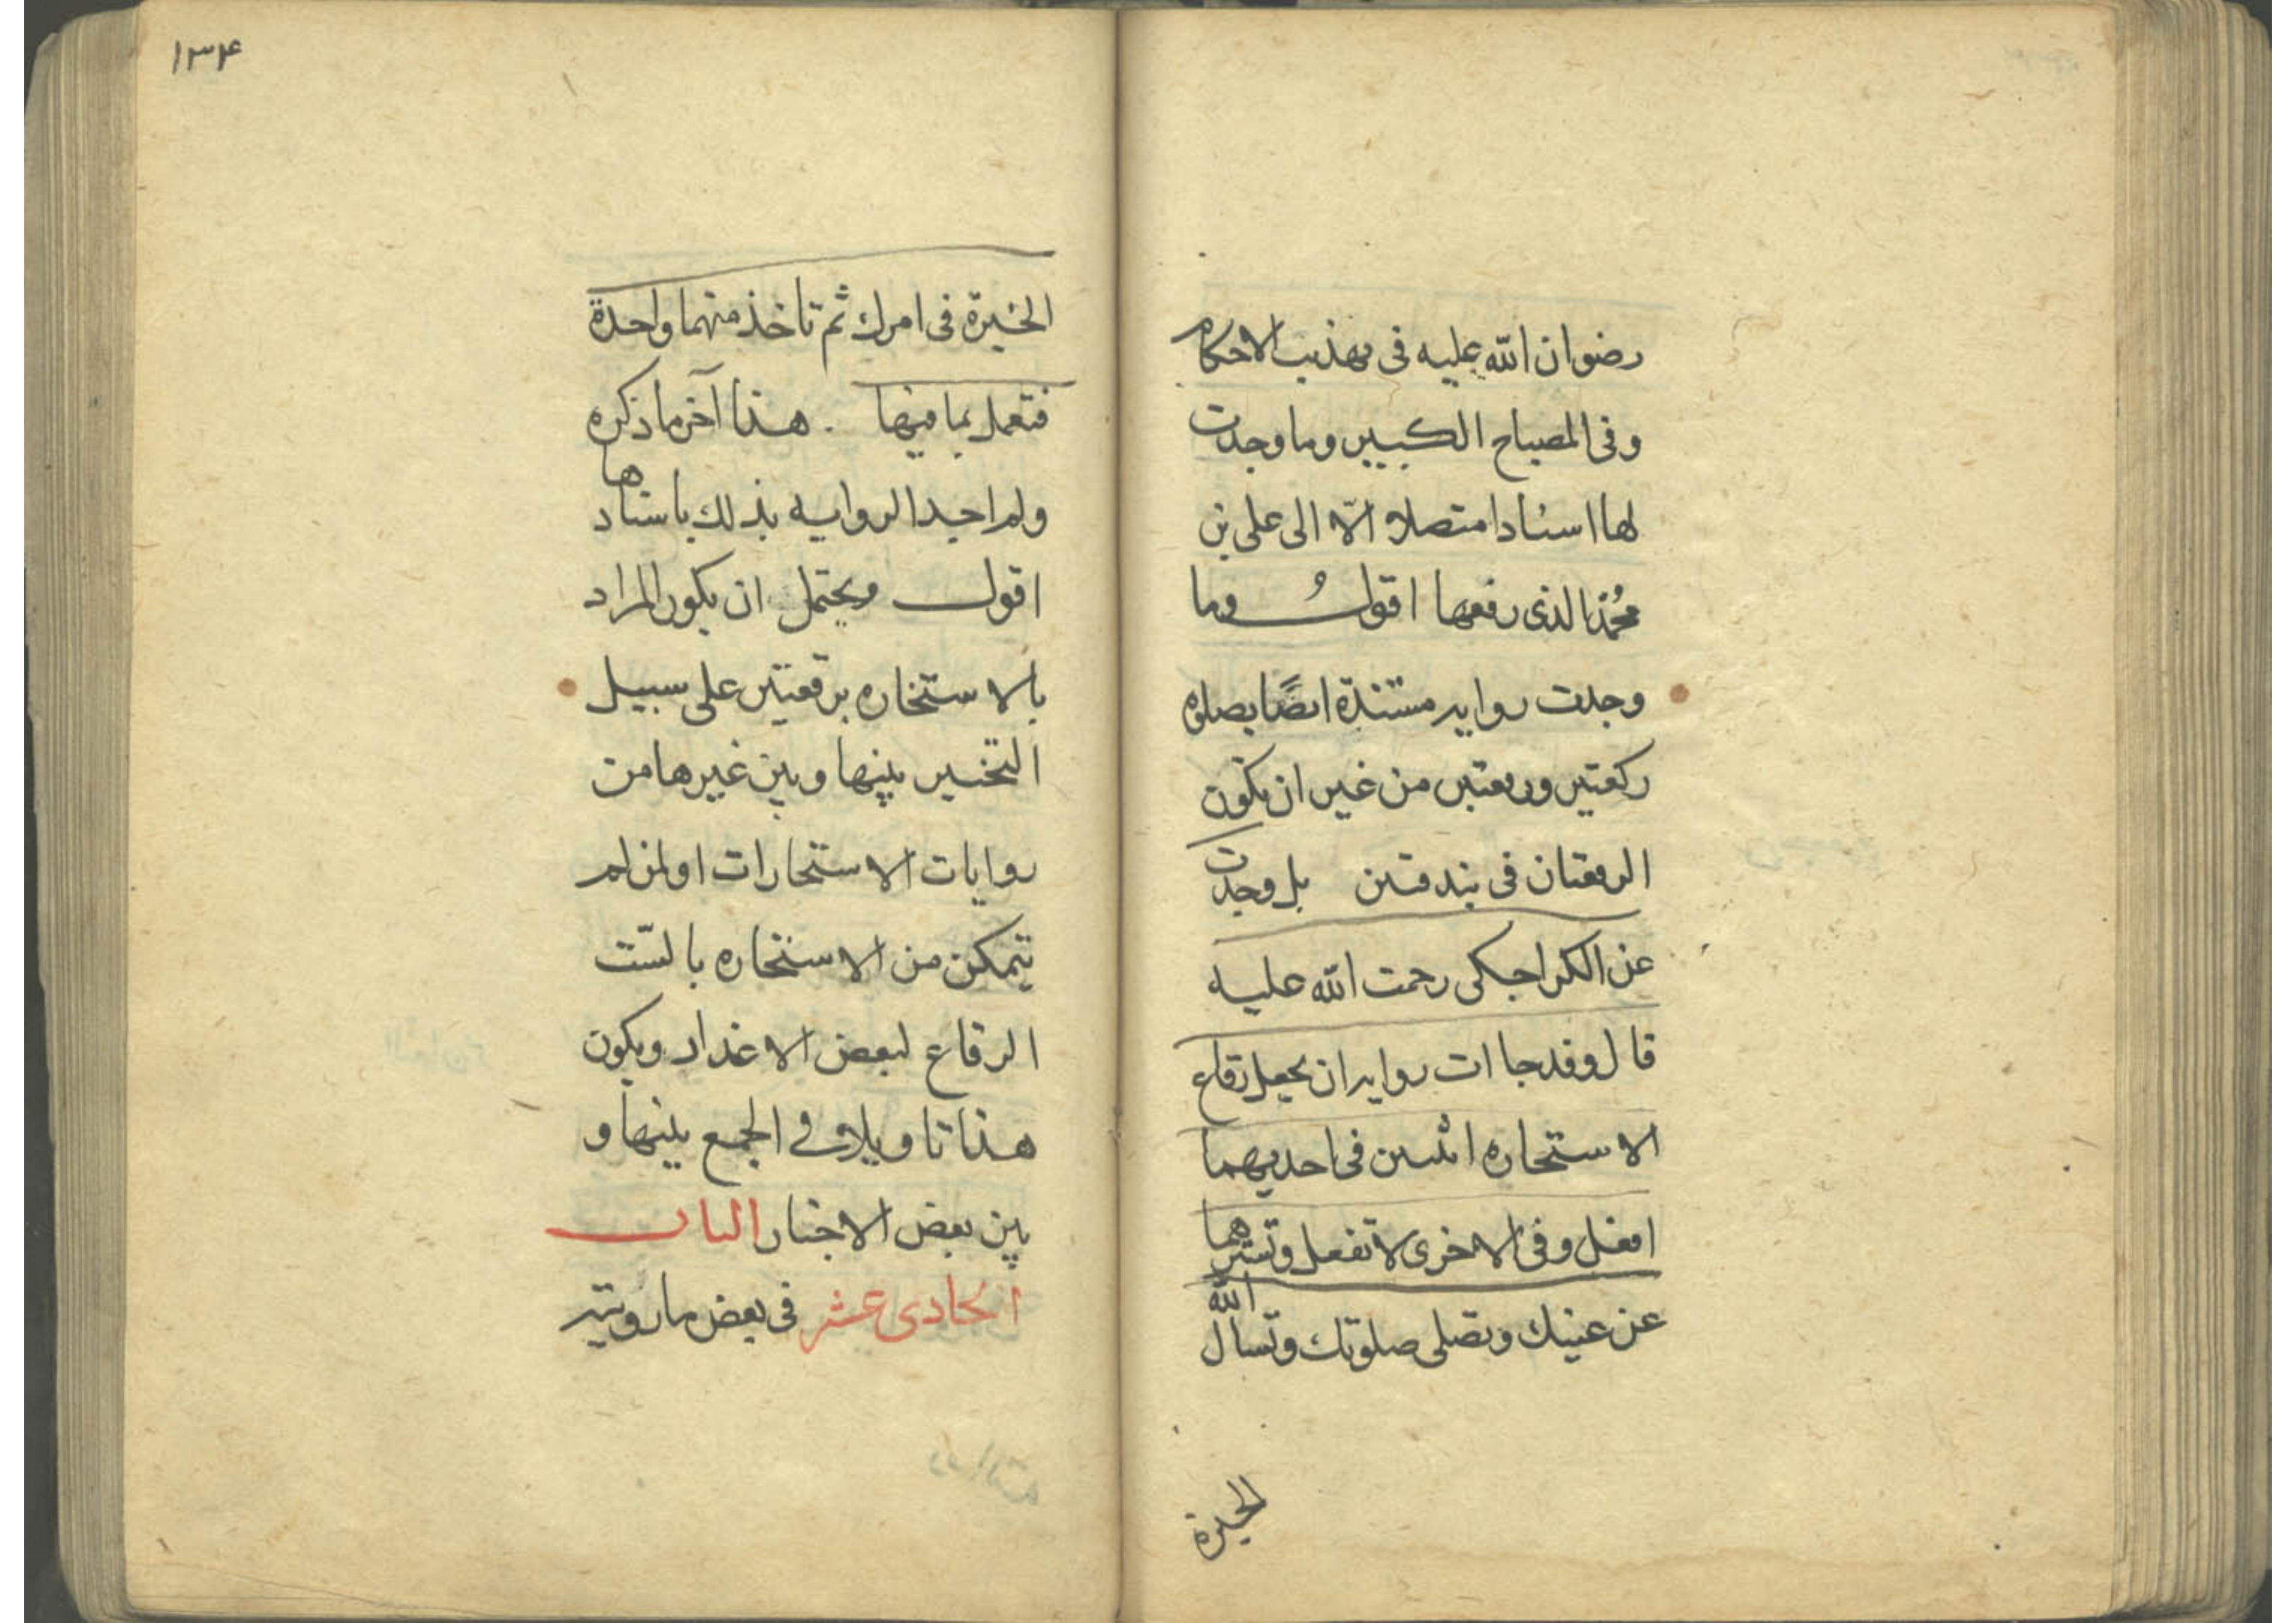 رضوان الله عليه فى تهذيب الاحكام
وفى المصباح الكبير وما وجدت
لها اسنادا متصلا الّا الى على بن
محُمّد الذى رفعها اقولُ وما
وجدت روايه مسندة ايضًا بصلوه
ركعتين ورقعتين من غير ان تكون
الرقعتان فى بندقتين بل وجدت
عن الكراجكى رحمت الله عليه
قال وقد جاات روايه ان يجعل رقاع
الاستخاره اثنين فى احديهما
افعل وفى الاخرى لا تفعل وتسترهما
عن عينيك وتصلى صلوتك وتسال الله
الخيرة
۱۳۴
الخيرة فى امرك ثم تاخذ منهما واحدة
فتعمل بما فيها . هذا آخر ما ذكره
ولم اجد الروايه بذلك باسنادها
اقول ويحتمل ان يكون المراد
بالاستخاره برقعتين على سبيل
التخيير بينها وبين غيرها من
روايات الاستخارات او لمن لم
يتمكن من الاستخاره بالسّت
الرقاع لبعض الاعذار ويكون
هذا تاويلا فى الجمع بينها و
بين بعض الاخبار الباب
الحادى عشر فى بعض ما رويته